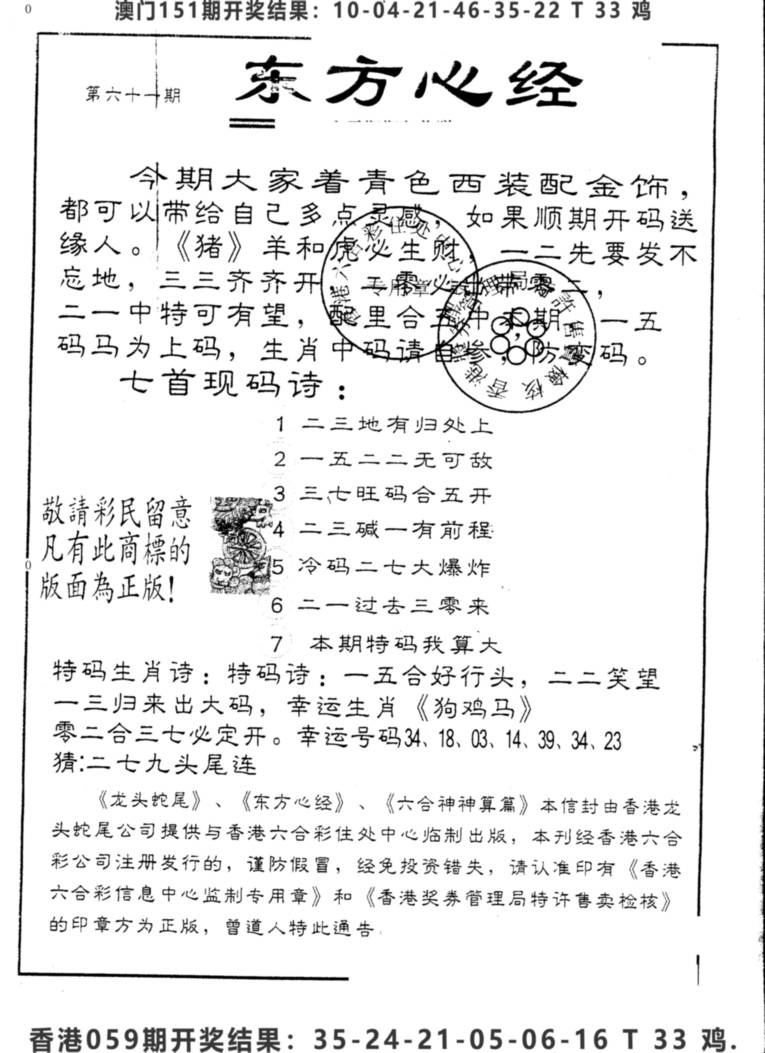 澳门151期开奖结果：10-04-21-46-35-22 T 33 鸡
第六十一期
东方心经
今期大家着青色西装配金饰，
都可以带给自己多点灵感，如果顺期开码送
缘人。《猪》羊和虎必生财，一二先要发不
忘地，三三齐齐开，二零必出带零二，
二一中特可有望，配里合五中本期，一五
码马为上码，生肖中码请自参，防变码。
七首现码诗：
1 二三地有归处上
2 一五二二无可敌
3 三七旺码合五开
4 二三碱一有前程
5 冷码二七大爆炸
6 二一过去三零来
7 本期特码我算大
敬請彩民留意
凡有此商標的
版面為正版!
特码生肖诗：特码诗：一五合好行头，二二笑望
一三归来出大码，幸运生肖《狗鸡马》
零二合三七必定开。幸运号码34、18、03、14、39、34、23
猜:二七九头尾连
《龙头蛇尾》、《东方心经》、《六合神神算篇》本信封由香港龙
头蛇尾公司提供与香港六合彩住处中心临制出版，本刊经香港六合
彩公司注册发行的，谨防假冒，经免投资错失，请认准印有《香港
六合彩信息中心监制专用章》和《香港奖券管理局特许售卖检核》
的印章方为正版，曾道人特此通告
香港059期开奖结果：35-24-21-05-06-16 T 33 鸡.